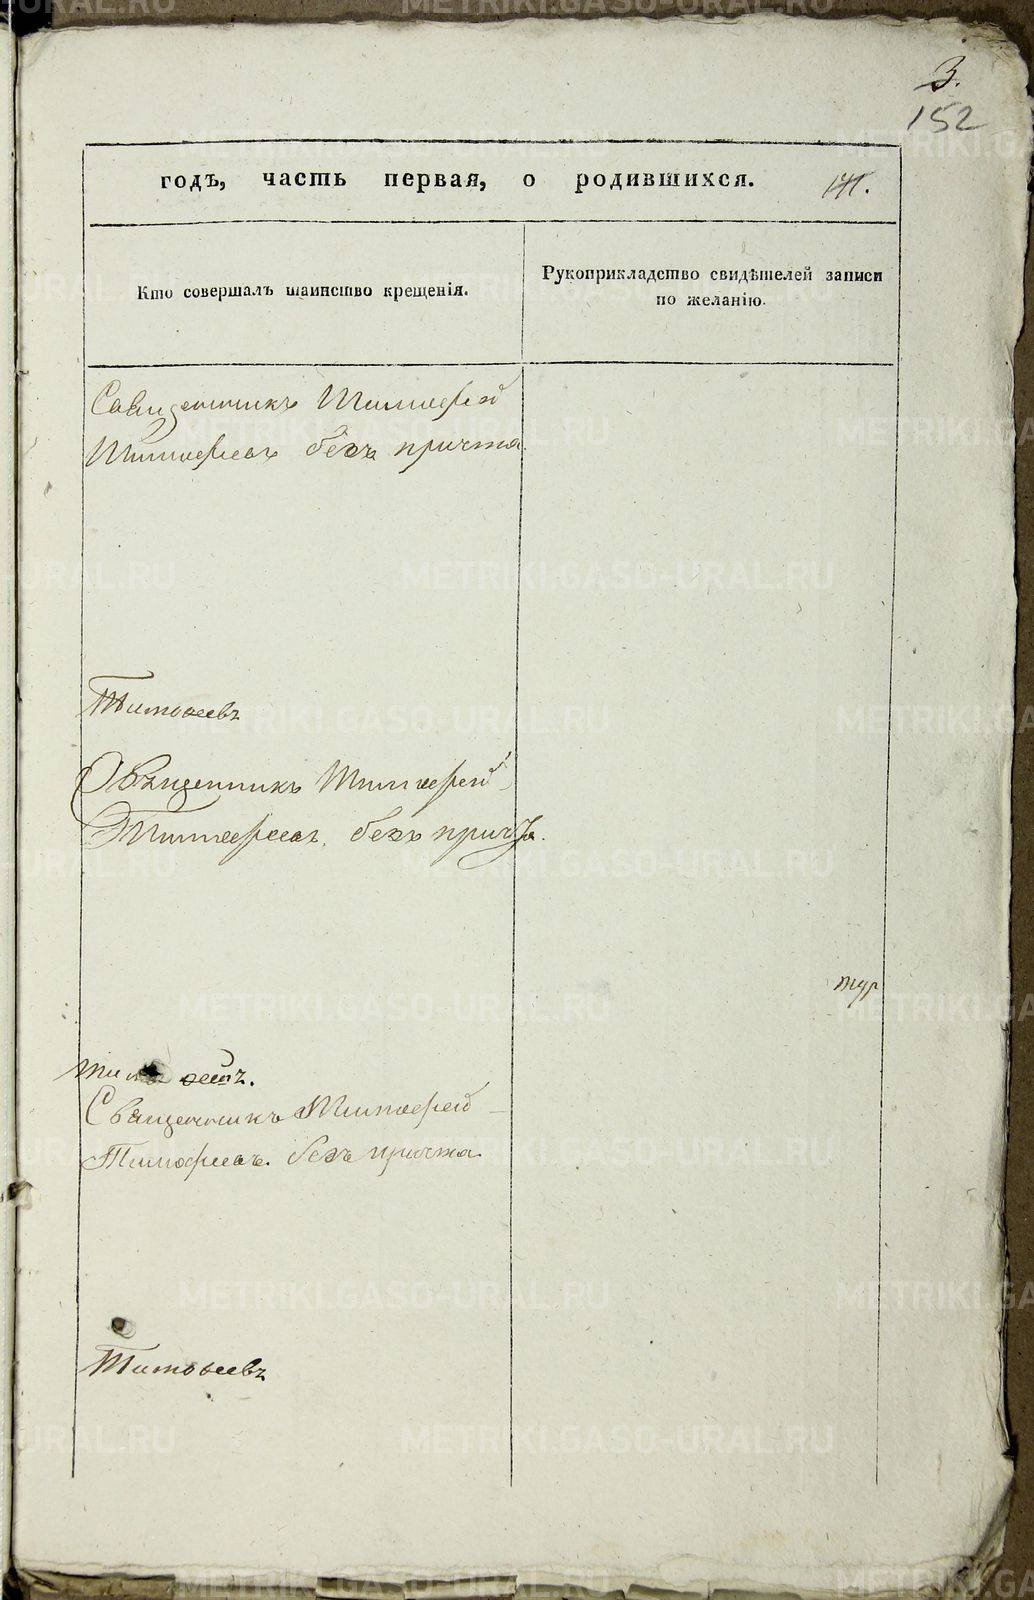 3.
152
годъ, часть первая, о родившихся.
Кто совершалъ таинство крещенія.
Рукоприкладство свидѣтелей записи
по желанію.
Священникъ Тимофей
Тимофеевъ безъ причта
Тимоѳеевъ
Священникъ Тимофей
Тимофеевъ. безъ причта.
Священникъ Тимофей
Тимофеевъ. безъ причта
Тимоѳеевъ
METRIKI.GASO-URAL.RU